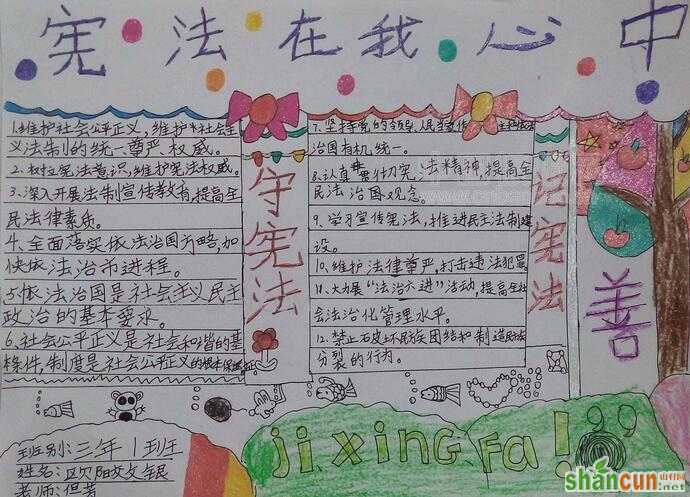 宪法在我心中
1.维护社会公平正义，维护社会主
义法制的统一尊严、权威。
2.树立宪法意识，维护宪法权威。
3.深入开展法制宣传教育，提高全
民法律素质。
4.全面落实依法治国方略，加
快依法治市进程。
5.依法治国是社会主义民主
政治的基本要求。
6.社会公平正义是社会和谐的基
本条件，制度是社会公平正义的根本保证
守宪法
7.坚持党的领导、人民当家作
治国有机统一。
8.认真贯彻宪法精神，提高全
民法治国观念。
9.学习宣传宪法，推进民主法制建
设。
10.维护法律尊严，打击违法犯罪
11.大力展“法治六进”活动，提高全社
会法治化管理水平。
12.禁止破坏民族团结和制造民族
分裂的行为。
记宪法
善
班级别：三年1班班
姓名：欧阳文银
老师：但芳
jixingFa!
shancun
.net